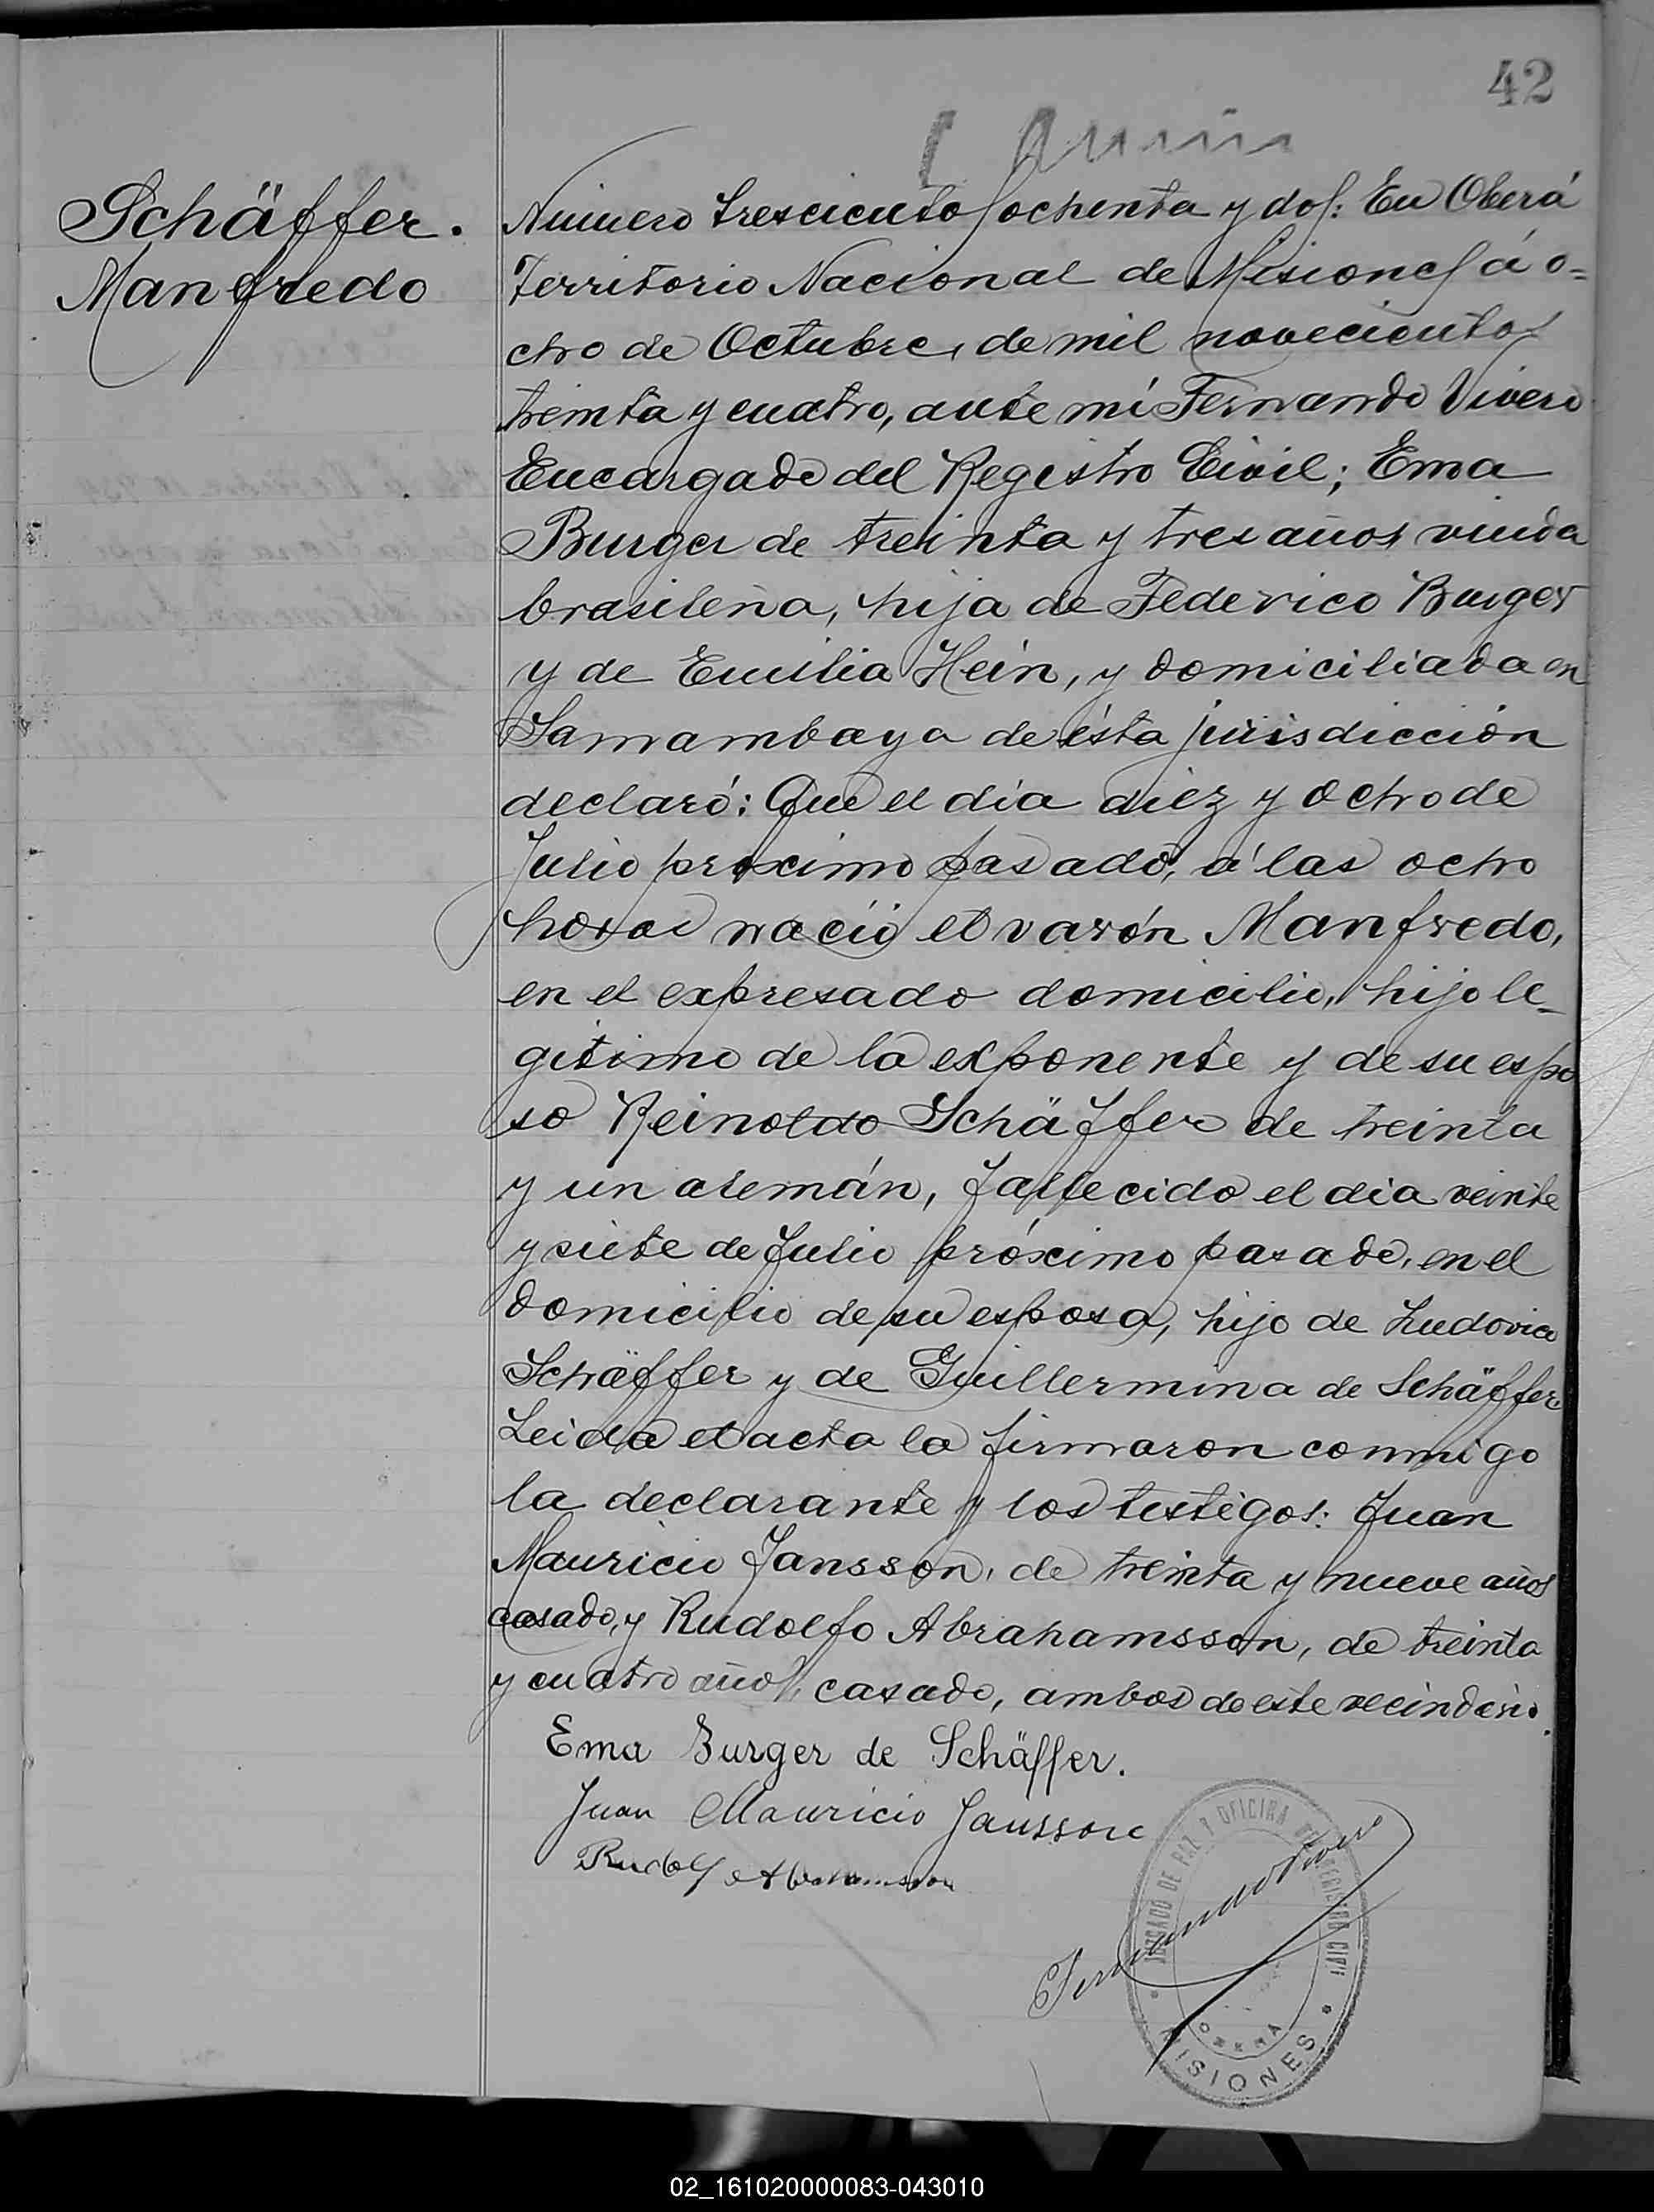 42
Schäffer.
Manfredo
Número trescientos ochenta y dos: En Oberá
Territorio Nacional de Misiones á o=
cho de Octubre, de mil novecientos
treinta y cuatro, ante mi Fernando Vivero
Encargado del Registro Civil; Ema
Burger de treinta y tres años viuda
brasileña, hija de Federico Burger
y de Emilia Hein, y domiciliada en
Samambaya de ésta jurisdicción
declaró: Que el día diez y ocho de
Julio próximo pasado, á las ocho
horas nació el varón Manfredo,
en el expresado domicilio, hijo le-
gitimo de la exponente y de su espo
so Reinoldo Schäffer de treinta
y un alemán, fallecido el dia veinte
y siete de Julio próximo pasado, en el
domicilio de su esposa, hijo de Ludovico
Schäffer y de Guillermina de Schäffer.
Leida el acta la firmaron conmigo
la declarante y los testigos: Juan
Mauricio Jansson, de treinta y nueve años
casado, y Rudolfo Abrahamsson, de treinta
y cuatro años, casado, ambos de este vecindario.
Ema Burger de Schäffer.
Juan Mauricio Jansson
Rudolf Abrahamsson
Fernando Vivero
JUZGADO DE PAZ Y OFICINA DEL REGISTRO CIVIL
OBERÁ
MISIONES
02_161020000083-043010